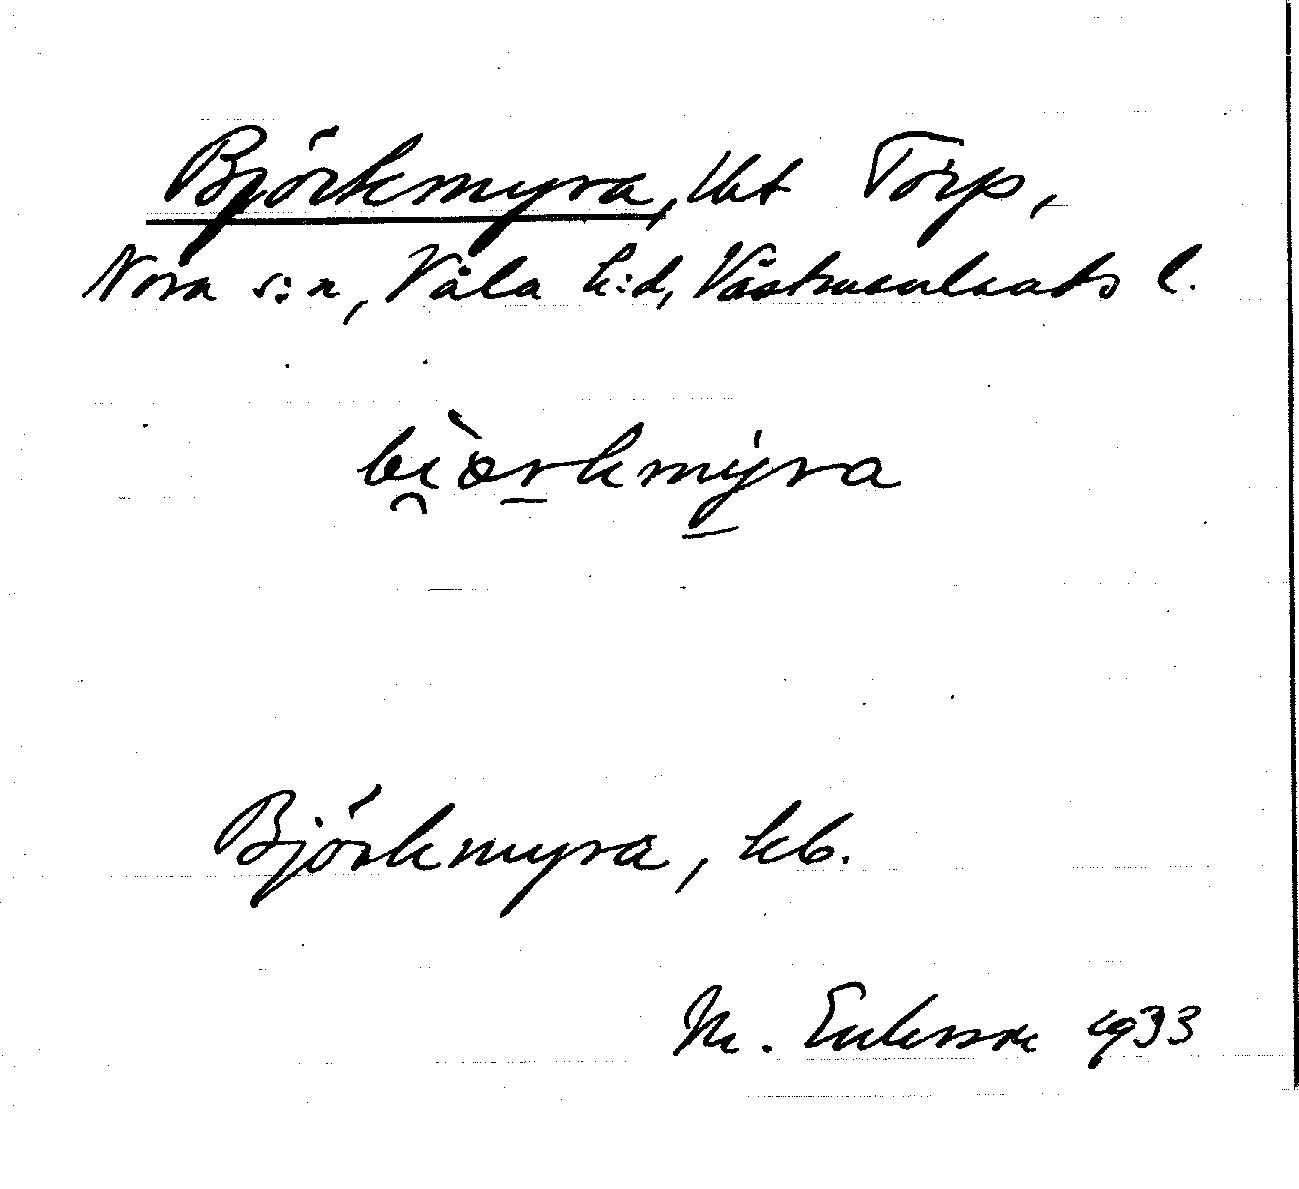 Björkmyra, Ust Torp,
Nora s:n, Våla h:d, Västmanlands l.
bi̯ö̀rkmýra
Björkmyra, kb.
M. Eriksson 1933